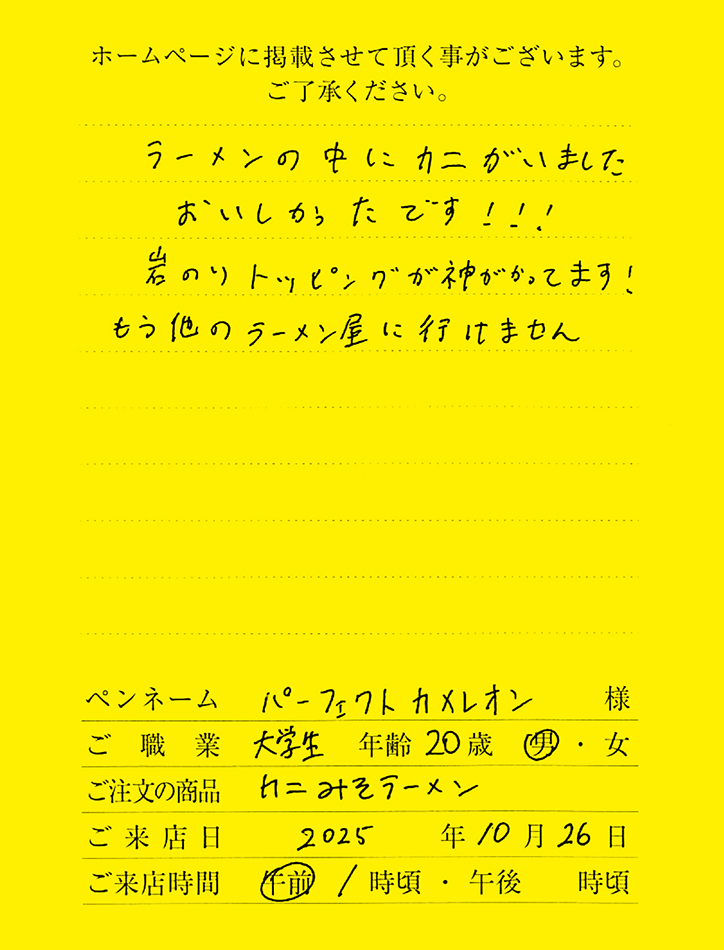 ホームページに掲載させて頂く事がございます。
ご了承ください。
ラーメンの中にカニがいました
おいしかったです!!!
岩のりトッピングが神がかってます!
もう他のラーメン屋に行けません
ペンネーム パーフェクトカメレオン 様
ご職業 大学生 年齢 20 歳 男・女
ご注文の商品 カニみそラーメン
ご来店日 2025 年 10 月 26 日
ご来店時間 午前 1 時頃・午後 時頃